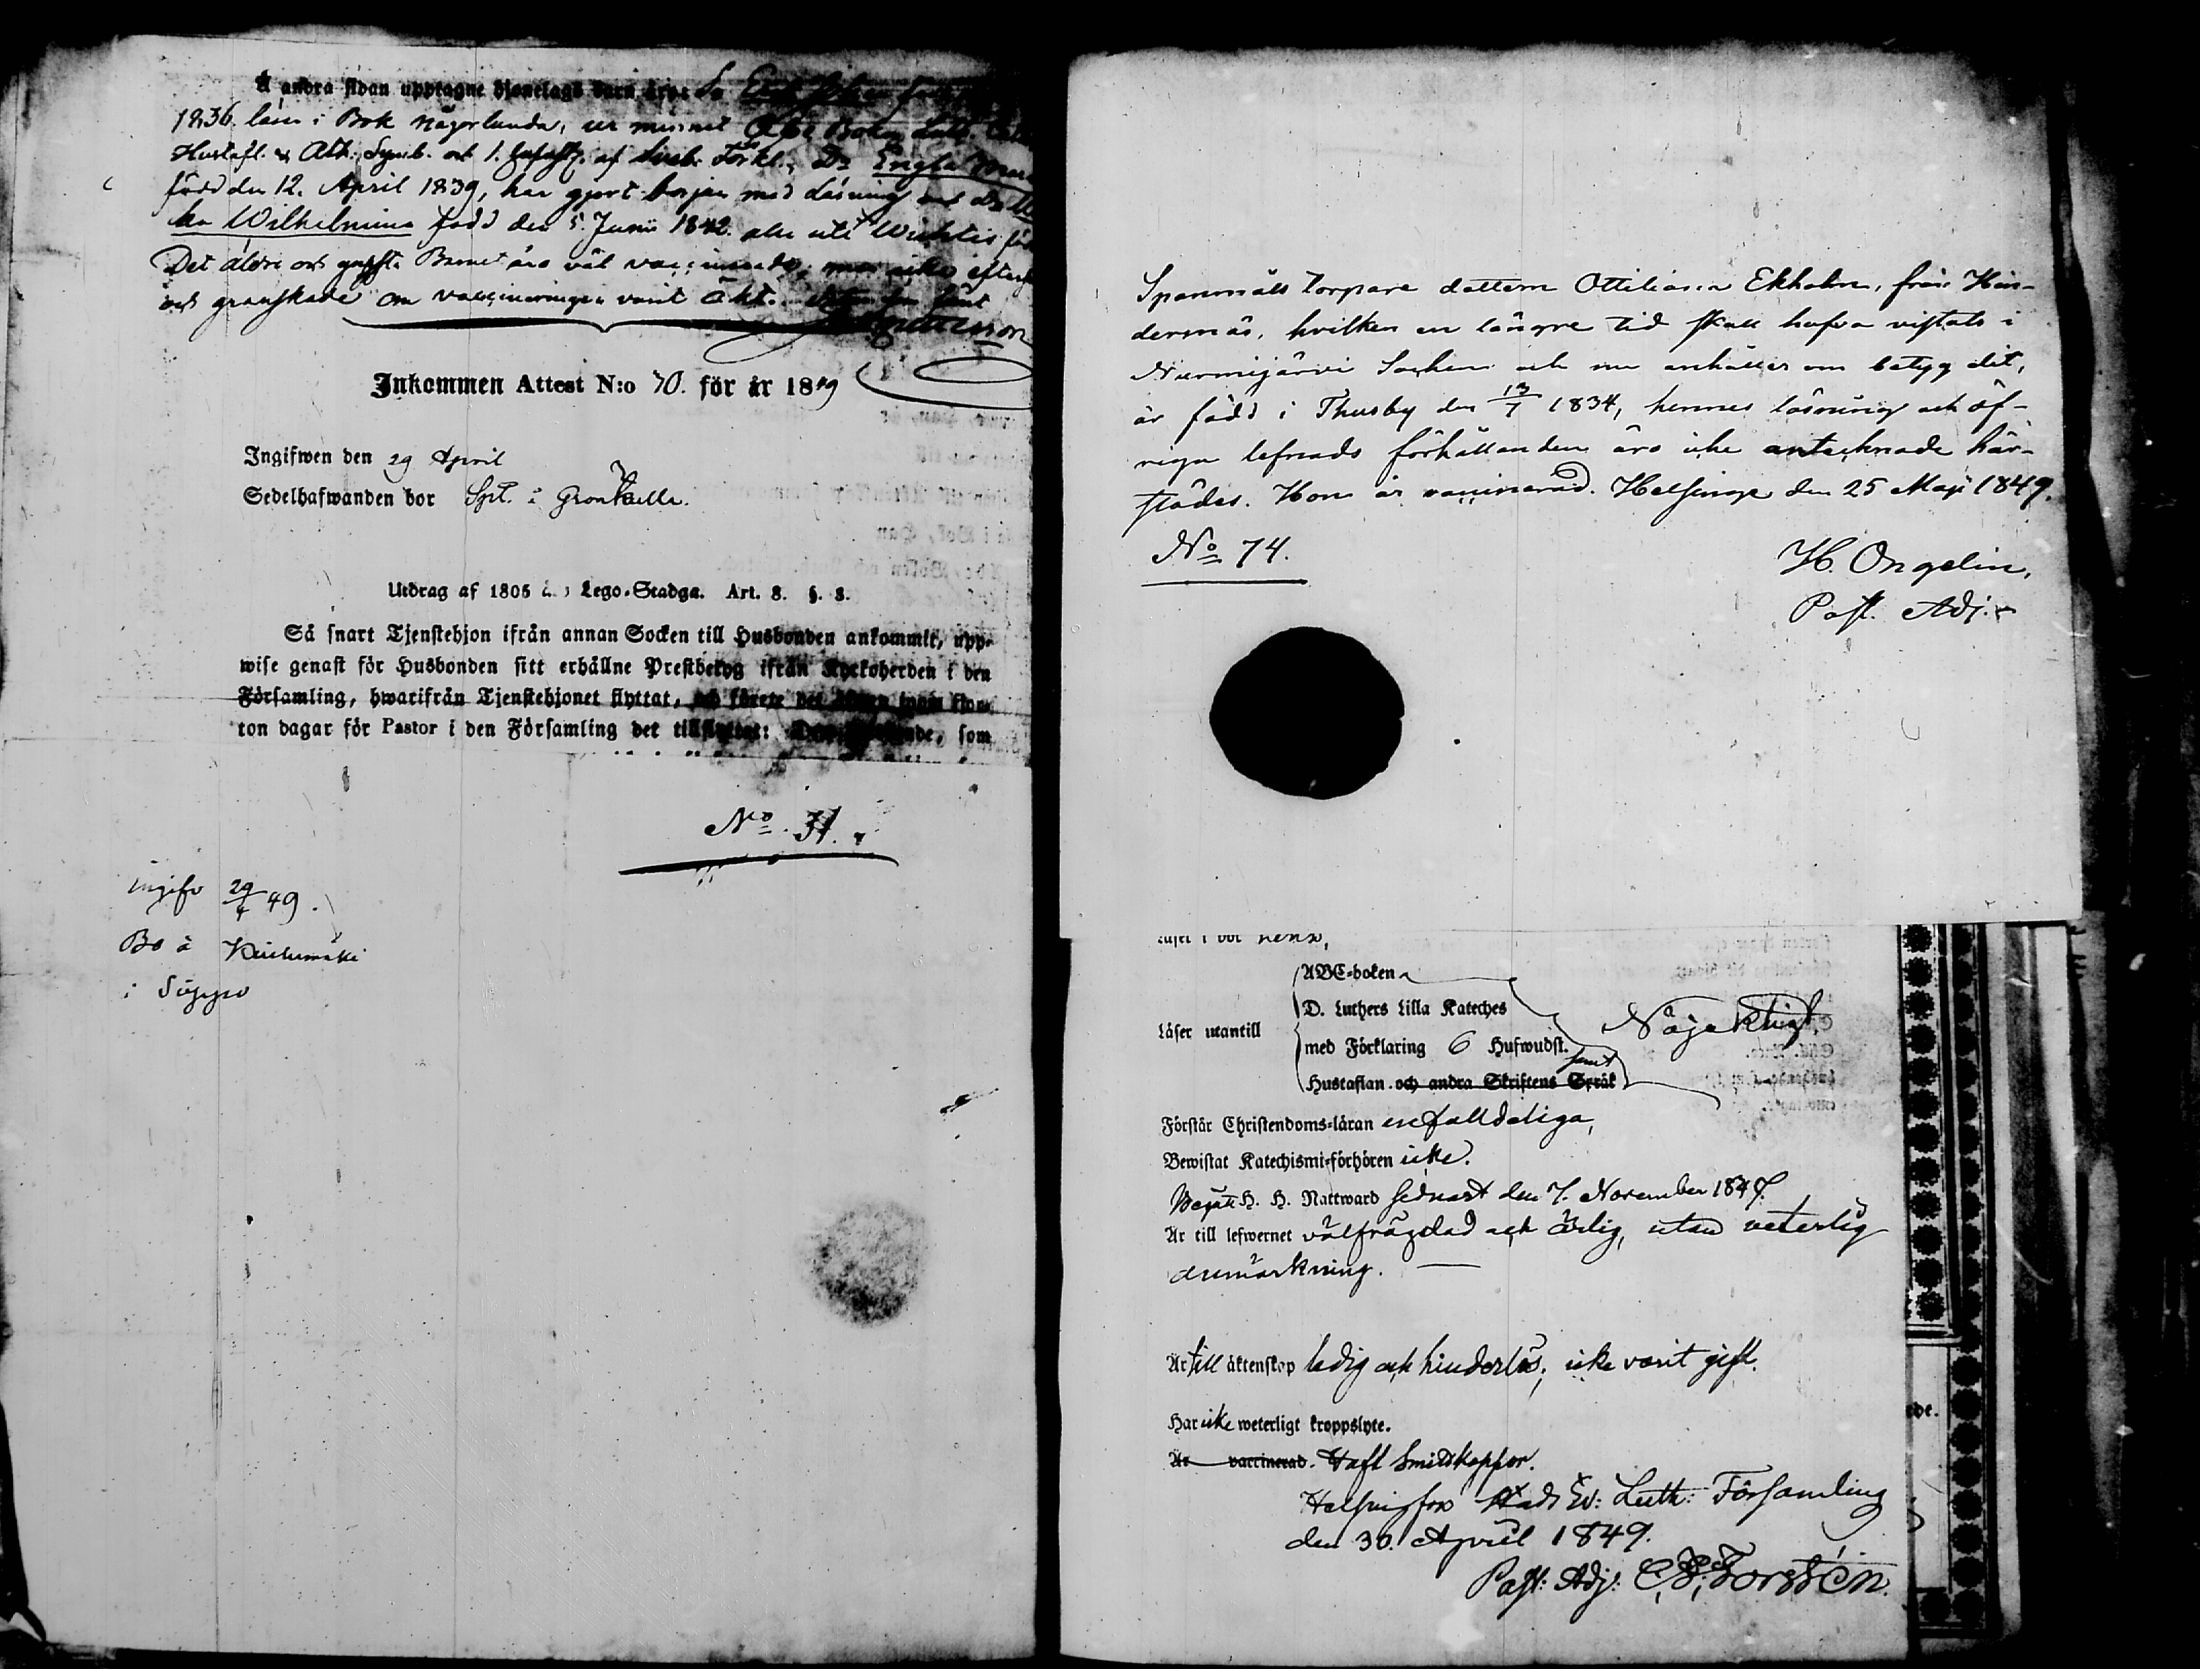 Å andra sidan upptagne tjenstehjons barn äro: So
1836. läser i Bok någorlunda, ur minnet Abc Boken Luth.
Hustafl. & Ath. Symb. och 1. af Sveb. Förkl., Dr Engla
född den 12. April 1839, har gjort början med Läsning och Dr
ka Wilhelmina född den 5. Junii 1842. alla uti Wichtis
Det äldre och yngsta Barnet äro väl vaccinerade, men icke
och granskade om vaccineringen varit äkt.
Inkommen Attest N:o 70. för år 1849
Ingifwen den 29 April
Sedelhafwanden bor Spt. i Gronkulla.
Utdrag af 1805 års Lego-Stadga. Art. 8. §. 8.
Så snart Tjenstehjon ifrån annan Socken till Husbonden ankommit, upp-
wise genast för Husbonden sitt erhållne Prestbetyg ifrån Kyrkoherden i den
Församling, hwarifrån Tjenstehjonet flyttat, och förete det
ton dagar för Pastor i den Församling det tillflyttat: som
No 31.
ingifv 29/4 49.
Bo å
i
Spannmåls Torpare dottern Ottiliana Ekholm, från Hän-
dernäs, hvilken en längre tid skall hafva vistats i
Nurmijärvi Sochen och nu anhåller om betyg dit,
är född i Thusby den 13/7 1834, hennes läsning och öf-
riga lefnads förhållanden äro icke antecknade här-
städes. Hon är vaccinerad. Helsinge den 25 Maji 1849.
No 74.
H. Ongelin,
Past. Adj.
Läser i bok
ABC-boken
D. Luthers Lilla Kateches
Läser utantill
Nöjaktigt,
med Förklaring 6 Hufwudst.
samt
Hustaflan och andra Skriftens Språk
Förstår Christendoms-läran enfalldeliga,
Bewistat Katechismi-förhören icke.
Begått H. H. Nattward sednast den 7. November 1847.
Är till lefwernet välfrägdad och ärlig, utan veterlig
anmärkning.
Är till äktenskap ledig och hinderlös; icke varit gift.
Har icke weterligt kroppslyte.
Är vaccinerad. Haft Smittkoppor.
Helsingfors Stads Ev: Luth: Församling
den 30. April 1849.
Past: Adj: Forssten.